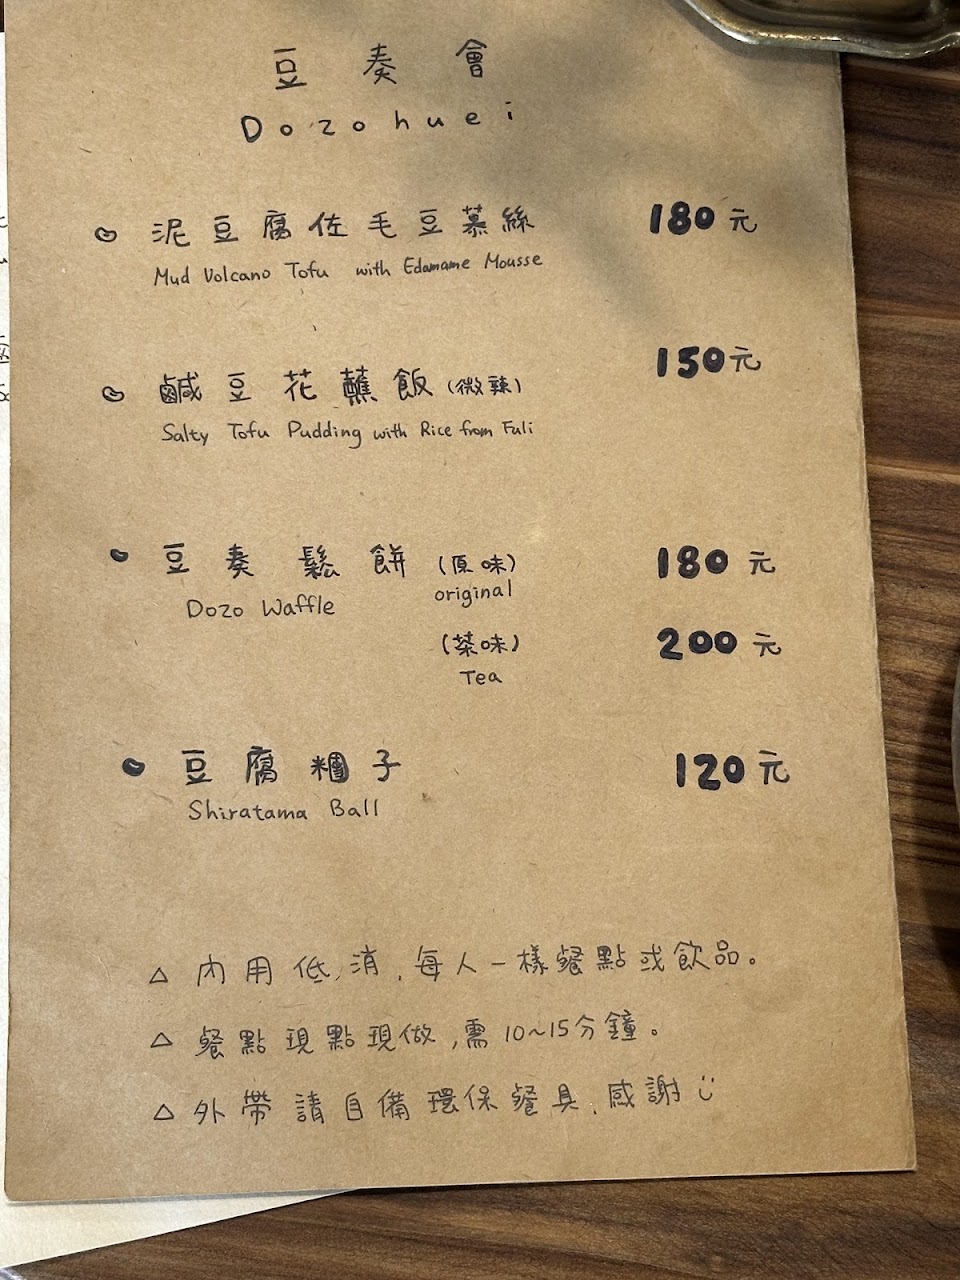 豆奏會
Dozohuei
泥豆腐佐毛豆慕絲 180元
Mud Volcano Tofu with Edamame Mousse
鹹豆花蘸飯(微辣) 150元
Salty Tofu Pudding with Rice from Fuli
豆奏鬆餅 (原味) 180元
Dozo Waffle original
(茶味) 200元
Tea
豆腐糰子 120元
Shiratama Ball
△ 內用低消,每人一樣餐點或飲品。
△ 餐點現點現做,需10~15分鐘。
△ 外帶請自備環保餐具,感謝